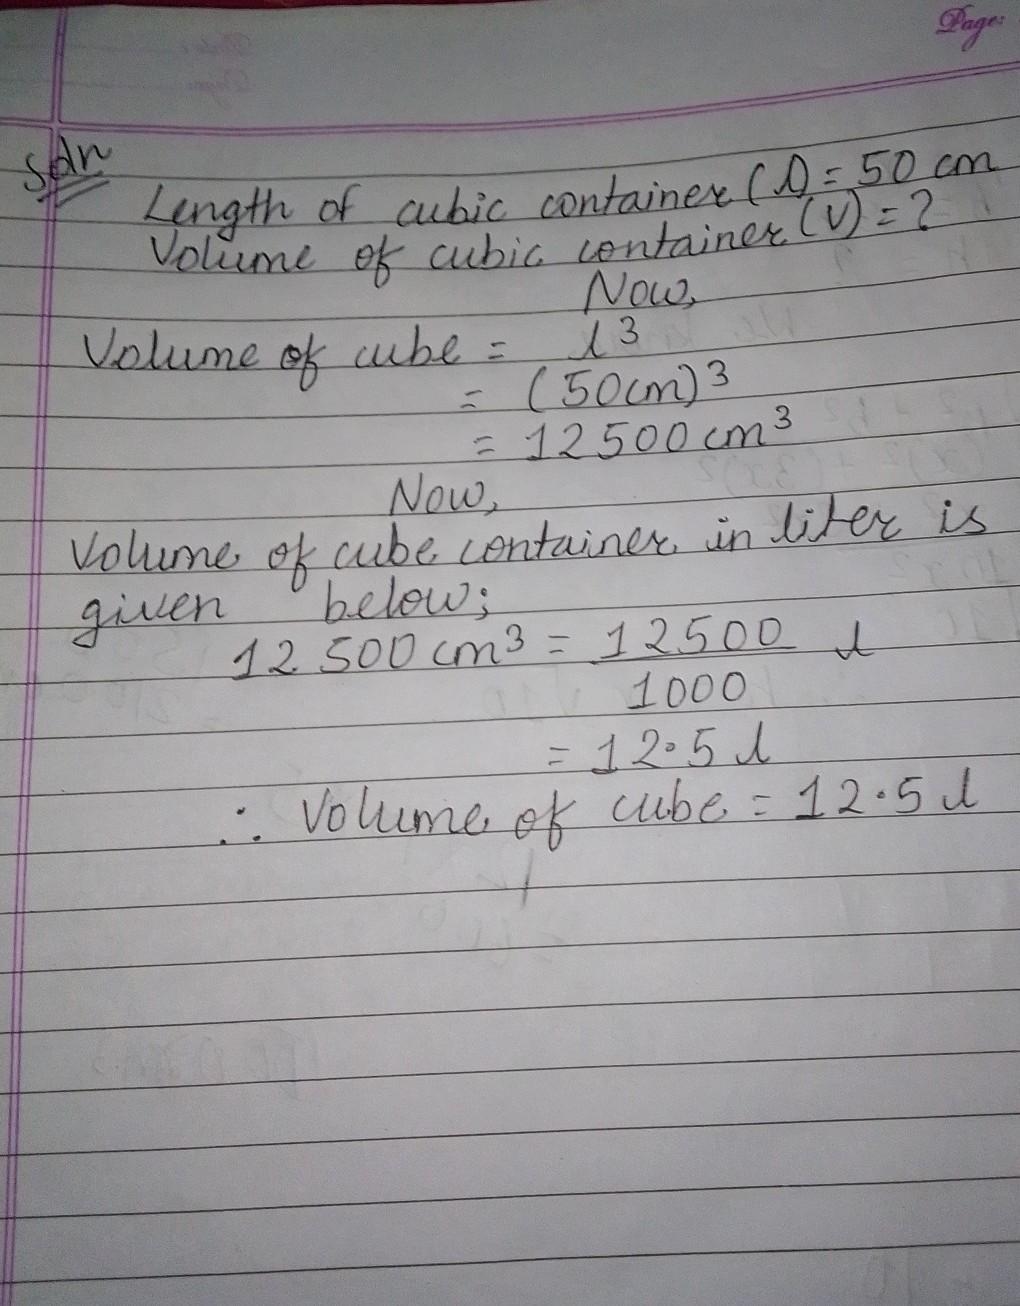 Page:
Soln
Length of cubic container (l) = 50 cm
Volume of cubic container (V) = ?
Now,
Volume of cube = l³
= (50cm)³
= 12500 cm³
Now,
Volume of cube container in liter is
given below;
12500 cm³ = 12500 l
1000
= 12.5 l
∴ Volume of cube = 12.5 l